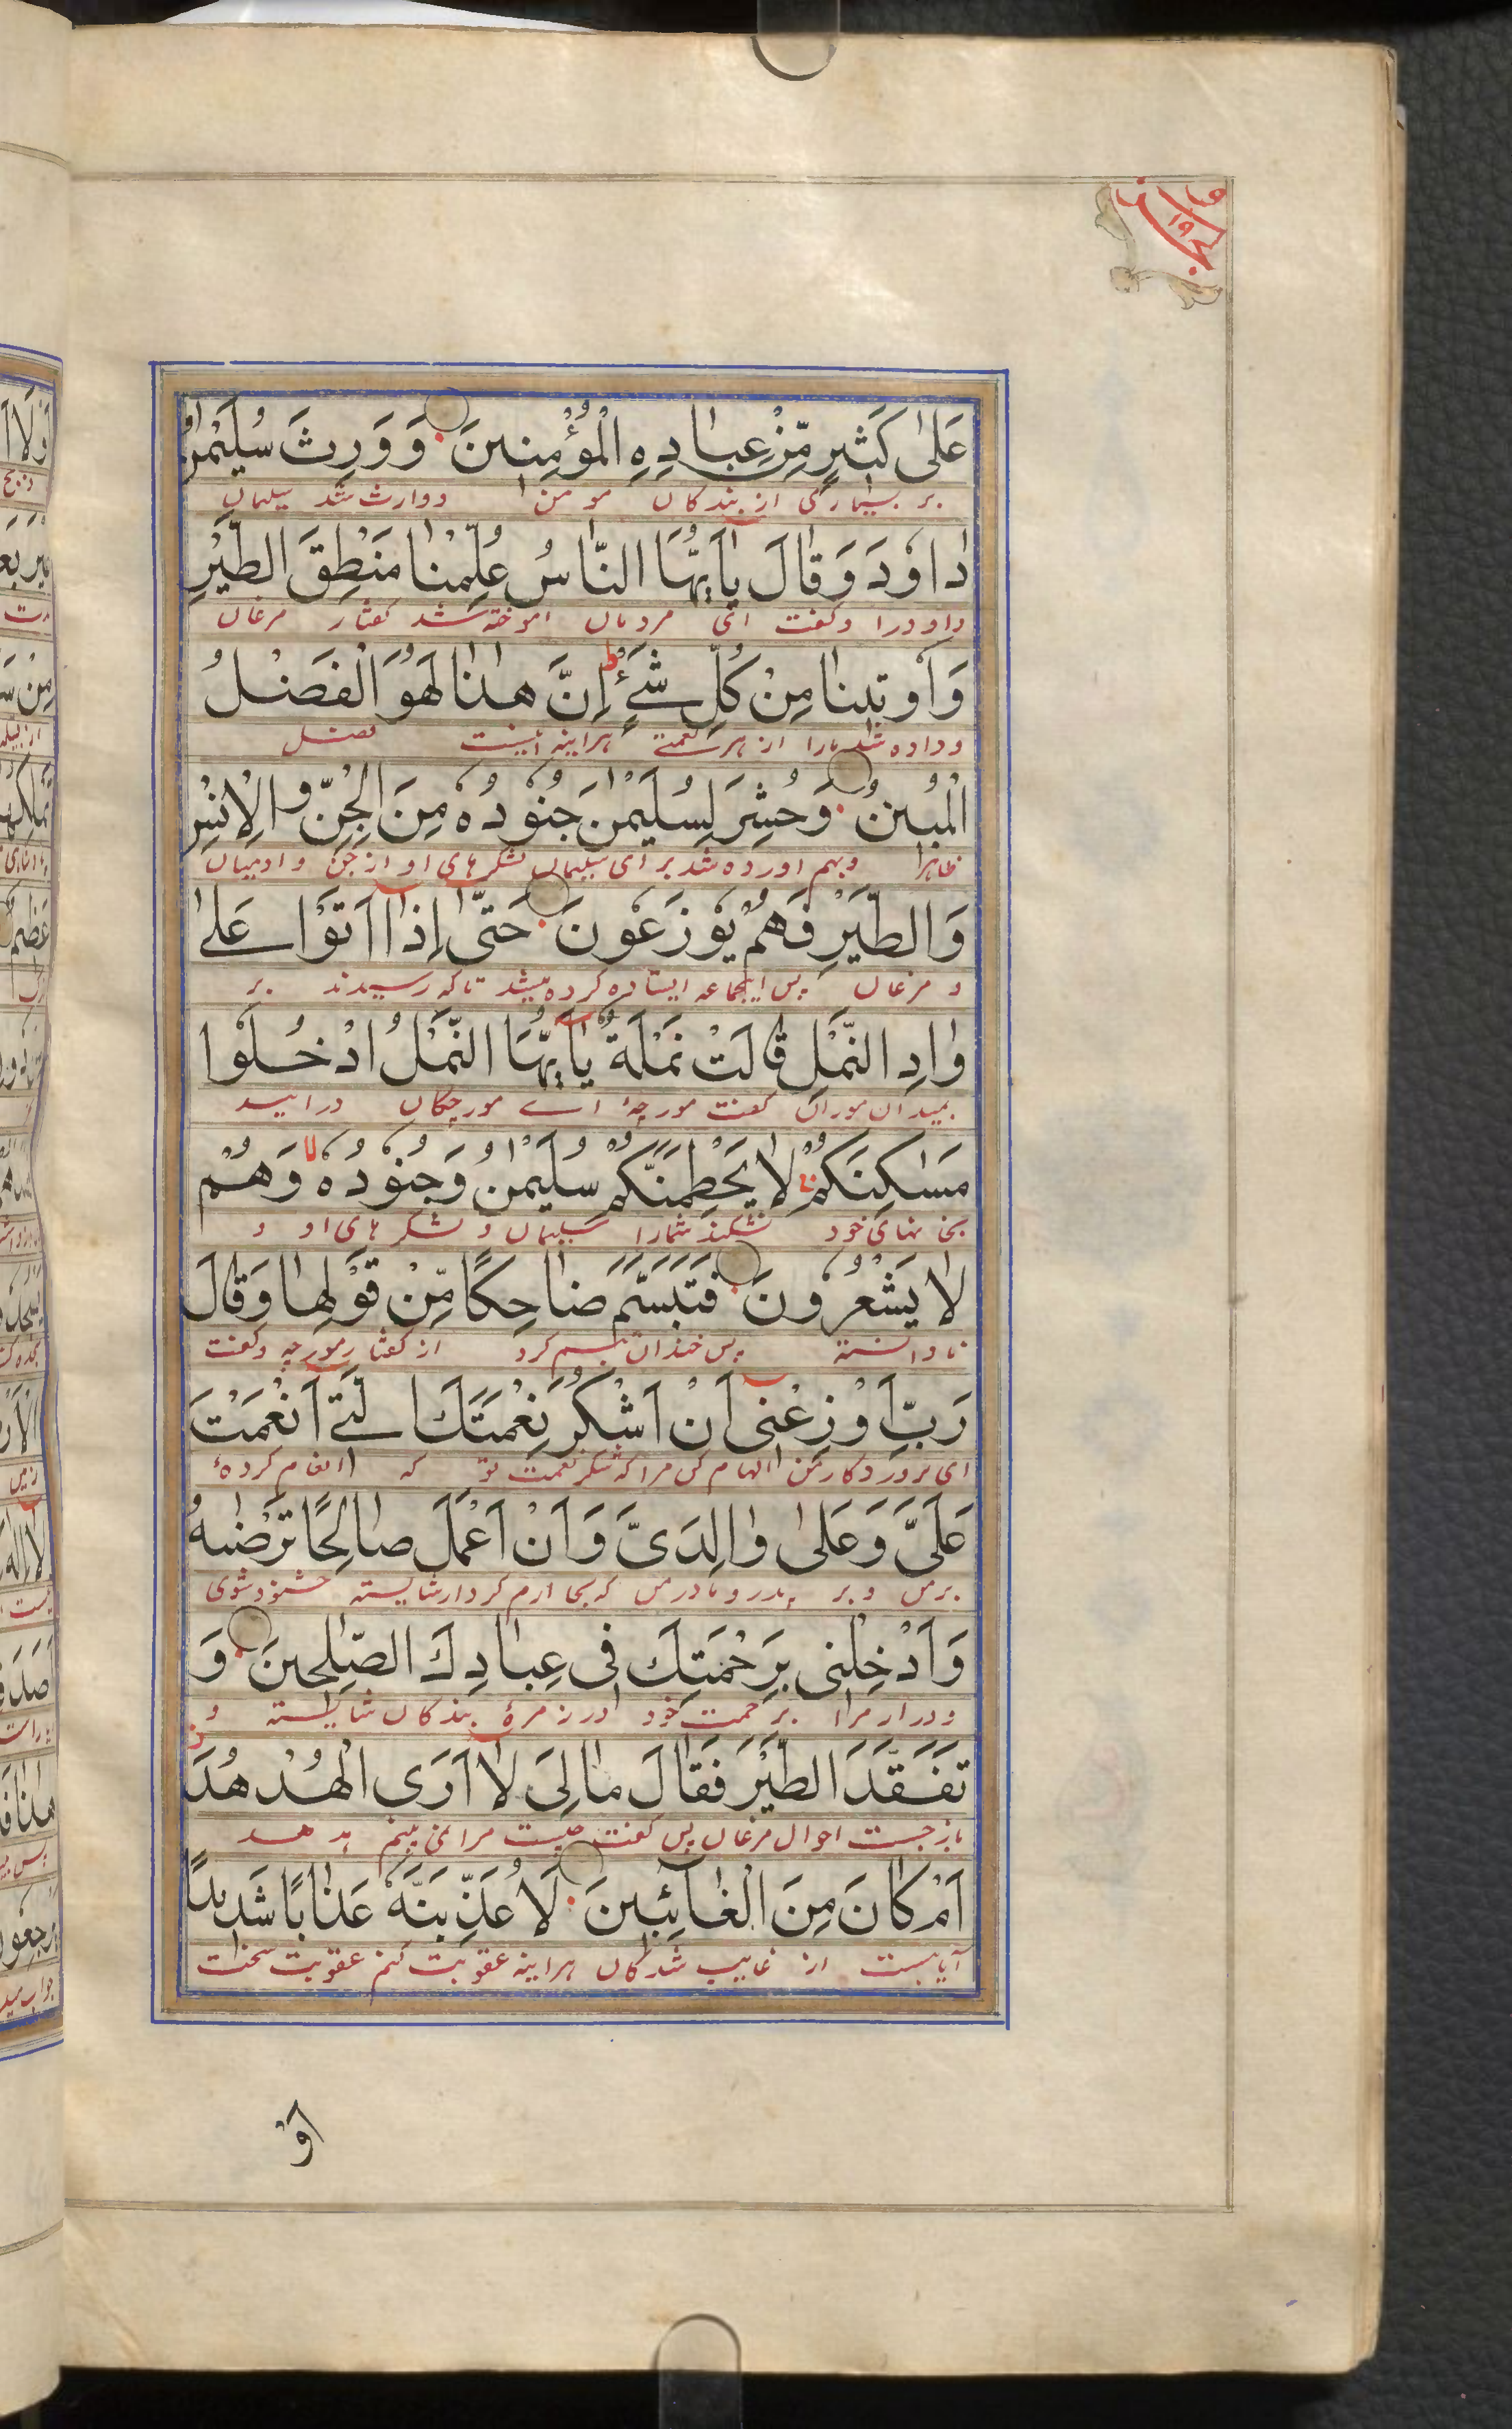 وقال الذین ١٩
عَلىٰ كَثيرٍ مِّنْ عِبادِهِ الْمُؤْمِنينَ وَ وَرِثَ سُلَيْمٰنُ
بر بسیاری از بندکان مومن و وارث شد سلیمان
داوٗدَ وَ قالَ يٰاَيُّهَا النّاسُ عُلِّمْنا مَنْطِقَ الطَّيْرِ
داود را و کفت ای مردمان اموخته شد کفتار مرغان
وَ اُوتينا مِنْ كُلِّ شَیْءٍ ط اِنَّ هٰذا لَهُوَ الْفَضْلُ
و داده شد مارا از هر نعمتے هراینه اینست فضل
الْمُبينُ وَ حُشِرَ لِسُلَيْمٰنَ جُنُودُهٗ مِنَ الْجِنِّ وَ الْاِنْسِ
ظاهر و بهم اورده شد برای سلیمان لشکرهای او از جن و ادمیان
وَ الطَّيْرِ فَهُمْ يُوزَعُونَ حَتّىٰ اِذا اَتَوْا عَلىٰ
و مرغان پس اینجماعه ایستاده کرده میشد تا که رسیدند بر
وادِ النَّمْلِ قالَتْ نَمْلَةٌ يٰاَيُّهَا النَّمْلُ ادْخُلُوا
بمیدان موران کفت مورچهٔ اے مورچکان درایید
مَسٰكِنَكُمْ لا يَحْطِمَنَّكُمْ سُلَيْمٰنُ وَ جُنُودُهٗ لا وَ هُمْ
بخانهای خود نشکند شمارا سلیمان و لشکرهای او و
لا يَشْعُرُونَ فَتَبَسَّمَ ضاحِكًا مِّنْ قَوْلِها وَ قالَ
نادانسته پس خندان تبسم کرد از کفتار مورچه و کفت
رَبِّ اَوْزِعْنى اَنْ اَشْكُرَ نِعْمَتَكَ الَّتى اَنْعَمْتَ
ای پروردکار من الهام کن مرا که شکر نعمت تو که انعام کردهٔ
عَلَىَّ وَ عَلىٰ والِدَىَّ وَ اَنْ اَعْمَلَ صالِحًا تَرْضٰيهُ
بر من و بر پدر و مادر من که بجا ارم کردار شایسته خشنود شوی
وَ اَدْخِلْنى بِرَحْمَتِكَ فى عِبادِكَ الصّٰلِحينَ وَ
و درار مرا برحمت خود در زمرهٔ بندکان شایسته و
تَفَقَّدَ الطَّيْرَ فَقالَ مالِىَ لا اَرَى الْهُدْهُدَ
بازجست احوال مرغان پس کفت چیست مرا نمی بینم هدهد
اَمْ كانَ مِنَ الْغائِبينَ لَاُعَذِّبَنَّهٗ عَذابًا شَديدًا
آیا هست از غایب شدکان هراینه عقوبت کنم عقوبت سخت
اَوْ